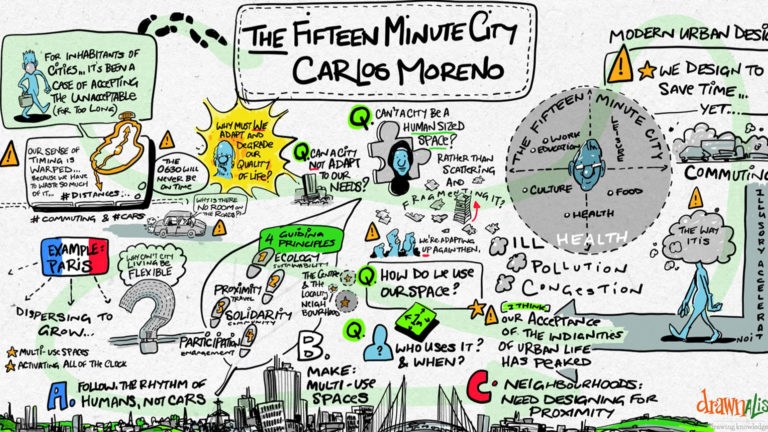 THE FIFTEEN MINUTE CITY
CARLOS MORENO
FOR INHABITANTS OF
CITIES... IT'S BEEN A
CASE OF ACCEPTING
THE UNACCEPTABLE
(FOR TOO LONG)
OUR SENSE OF
TIMING IS
WARPED...
BECAUSE WE HAVE
TO WASTE SO MUCH
OF IT...
#DISTANCES...
#COMMUTING & #CARS
THE
0630 WILL
NEVER BE
ON TIME
WHY IS THERE
NO ROOM ON
THE ROADS?
WHY MUST WE
ADAPT AND
DEGRADE
OUR
QUALITY
OF LIFE?
Q. CAN A CITY
NOT ADAPT
TO OUR
NEEDS?
Q. CAN'T A CITY BE A
HUMAN SIZED
SPACE?
RATHER THAN
SCATTERING
AND
FRAGMENTING IT?
WE'RE ADAPTING
UP AGAIN THEN,
THE FIFTEEN MINUTE CITY
WORK
EDUCATION
LEISURE
CULTURE
FOOD
HEALTH
HEALTH
MODERN URBAN DESIG
WE DESIGN TO
SAVE TIME...
YET...
COMMUTING
ILLUSORY ACCELERAT
THE WAY
IT IS
ILL
POLLUTION
CONGESTION
EXAMPLE:
PARIS
DISPERSING TO
GROW...
MULTI-USE SPACES
ACTIVATING ALL OF THE CLOCK
WHY CAN'T CITY
LIVING BE
FLEXIBLE
?
4 GUIDING
PRINCIPLES
1 ECOLOGY
SUSTAINABILITY
2
PROXIMITY
TRAVEL
3
SOLIDARITY
COMMUNITY
4
PARTICIPATION
ENGAGEMENT
THE CENTRE
& THE
LOCALITY
NEIGH
BOURHOOD
Q. HOW DO WE USE
OUR SPACE?
Q.
?
WHO USES IT?
& WHEN?
I THINK
OUR ACCEPTANCE
OF THE INDIGNITIES
OF URBAN LIFE
HAS PEAKED
A. FOLLOW THE RHYTHM OF
HUMANS, NOT CARS
B. MAKE:
MULTI-USE
SPACES
C. NEIGHBOURHOODS:
NEED DESIGNING FOR
PROXIMITY
drawnalis
drawing knowledge